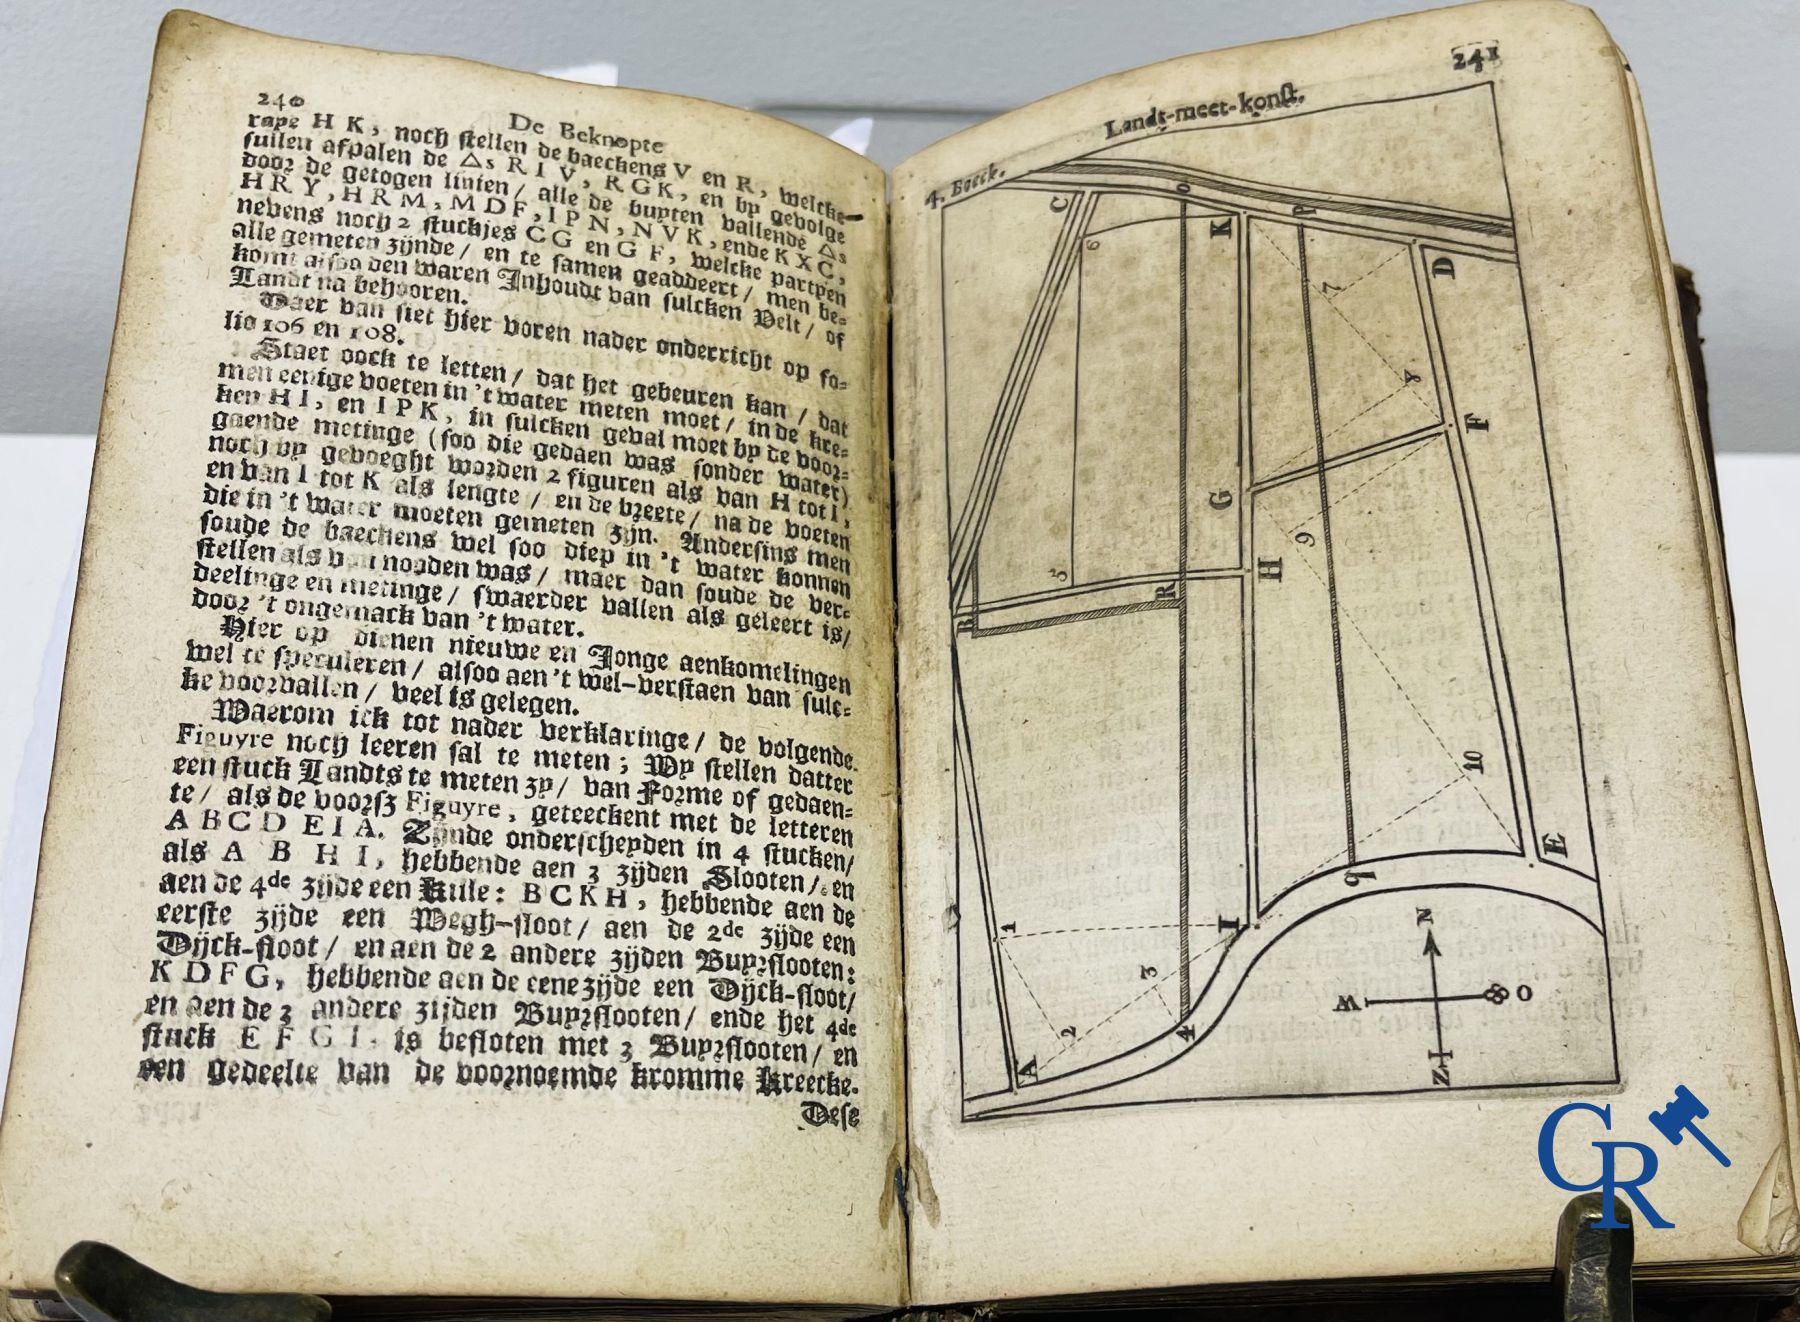 240
De Beknopte
rape H K, noch stellen de baeckens V en R, welcke
suilen afpalen de △s R I V, R G K, en by gevolge
door de getogen linien/ alle de buyten vallende △s
H R Y, H R M, M D F, I P N, N V K, ende K X C,
nevens noch 2 stuckjes C G en G F, welcke partyen
alle gemeten zijnde/ en te samen geaddeert/ men be-
komt alsoo den waren Inhoudt van sulcken Velt/ of
Landt na behooren.
Daer van siet hier voren nader onderricht op fo-
lio 106 en 108.
Staet oock te letten/ dat het gebeuren kan/ dat
men eenige voeten in 't water meten moet/ in de kre-
ken H I, en I P K, in sulcken geval moet by de voor-
gaende metinge (soo die gedaen was sonder water)
noch by gevoeght worden 2 figuren als van H tot I,
en van I tot K als lengte/ en de breete/ na de voeten
die in 't water moeten gemeten zijn. Andersins men
soude de baeckens wel soo diep in 't water konnen
stellen als van nooden was/ maer dan soude de ver-
deelinge en metinge/ swaerder vallen als geleert is/
door 't ongemack van 't water.
Hier op dienen nieuwe en Jonge aenkomelingen
wel te speculeren/ alsoo aen 't wel-verstaen van sulc-
ke voorvallen/ veel is gelegen.
Waerom ick tot nader verklaringe/ de volgende
Figuyre noch leeren sal te meten; Wy stellen datter
een stuck Landts te meten zy/ van Forme of gedaen-
te/ als de voorsz Figuyre, geteeckent met de letteren
A B C D E I A. Zijnde onderscheyden in 4 stucken/
als A B H I, hebbende aen 3 zijden Slooten/ en
aen de 4de zijde een Kille: B C K H, hebbende aen de
eerste zijde een Wegh-sloot/ aen de 2de zijde een
Dijck-sloot/ en aen de 2 andere zijden Buyrslooten:
K D F G, hebbende aen de eene zijde een Dijck-sloot/
en aen de 3 andere zijden Buyrslooten/ ende het 4de
stuck E F G I, is besloten met 3 Buyrslooten/ en
een gedeelte van de voornoemde kromme Kreecke.
Dese
241
Landt-meet-konst.
4. Boeck.
C
6
O
K
P
D
7
8
F
G
9
H
5
R
B
10
E
q
I
1
3
2
4
A
N
W
O
Z
CR